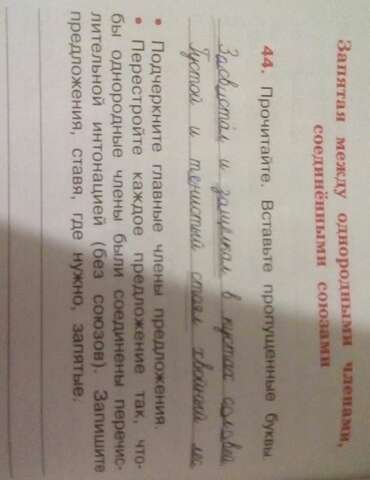 Запятая между однородными членами,
соединёнными союзами
44. Прочитайте. Вставьте пропущенные буквы
Засвистал и защелкал в кустах соловей
Густой и тенистый стоял хвойный ле
• Подчеркните главные члены предложения.
• Перестройте каждое предложение так, что-
бы однородные члены были соединены перечис-
лительной интонацией (без союзов). Запишите
предложения, ставя, где нужно, запятые.